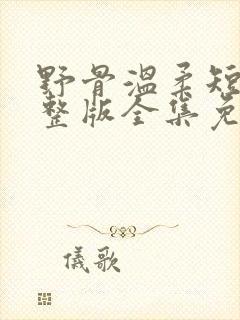 野骨温柔短
整版全集免
儀歌